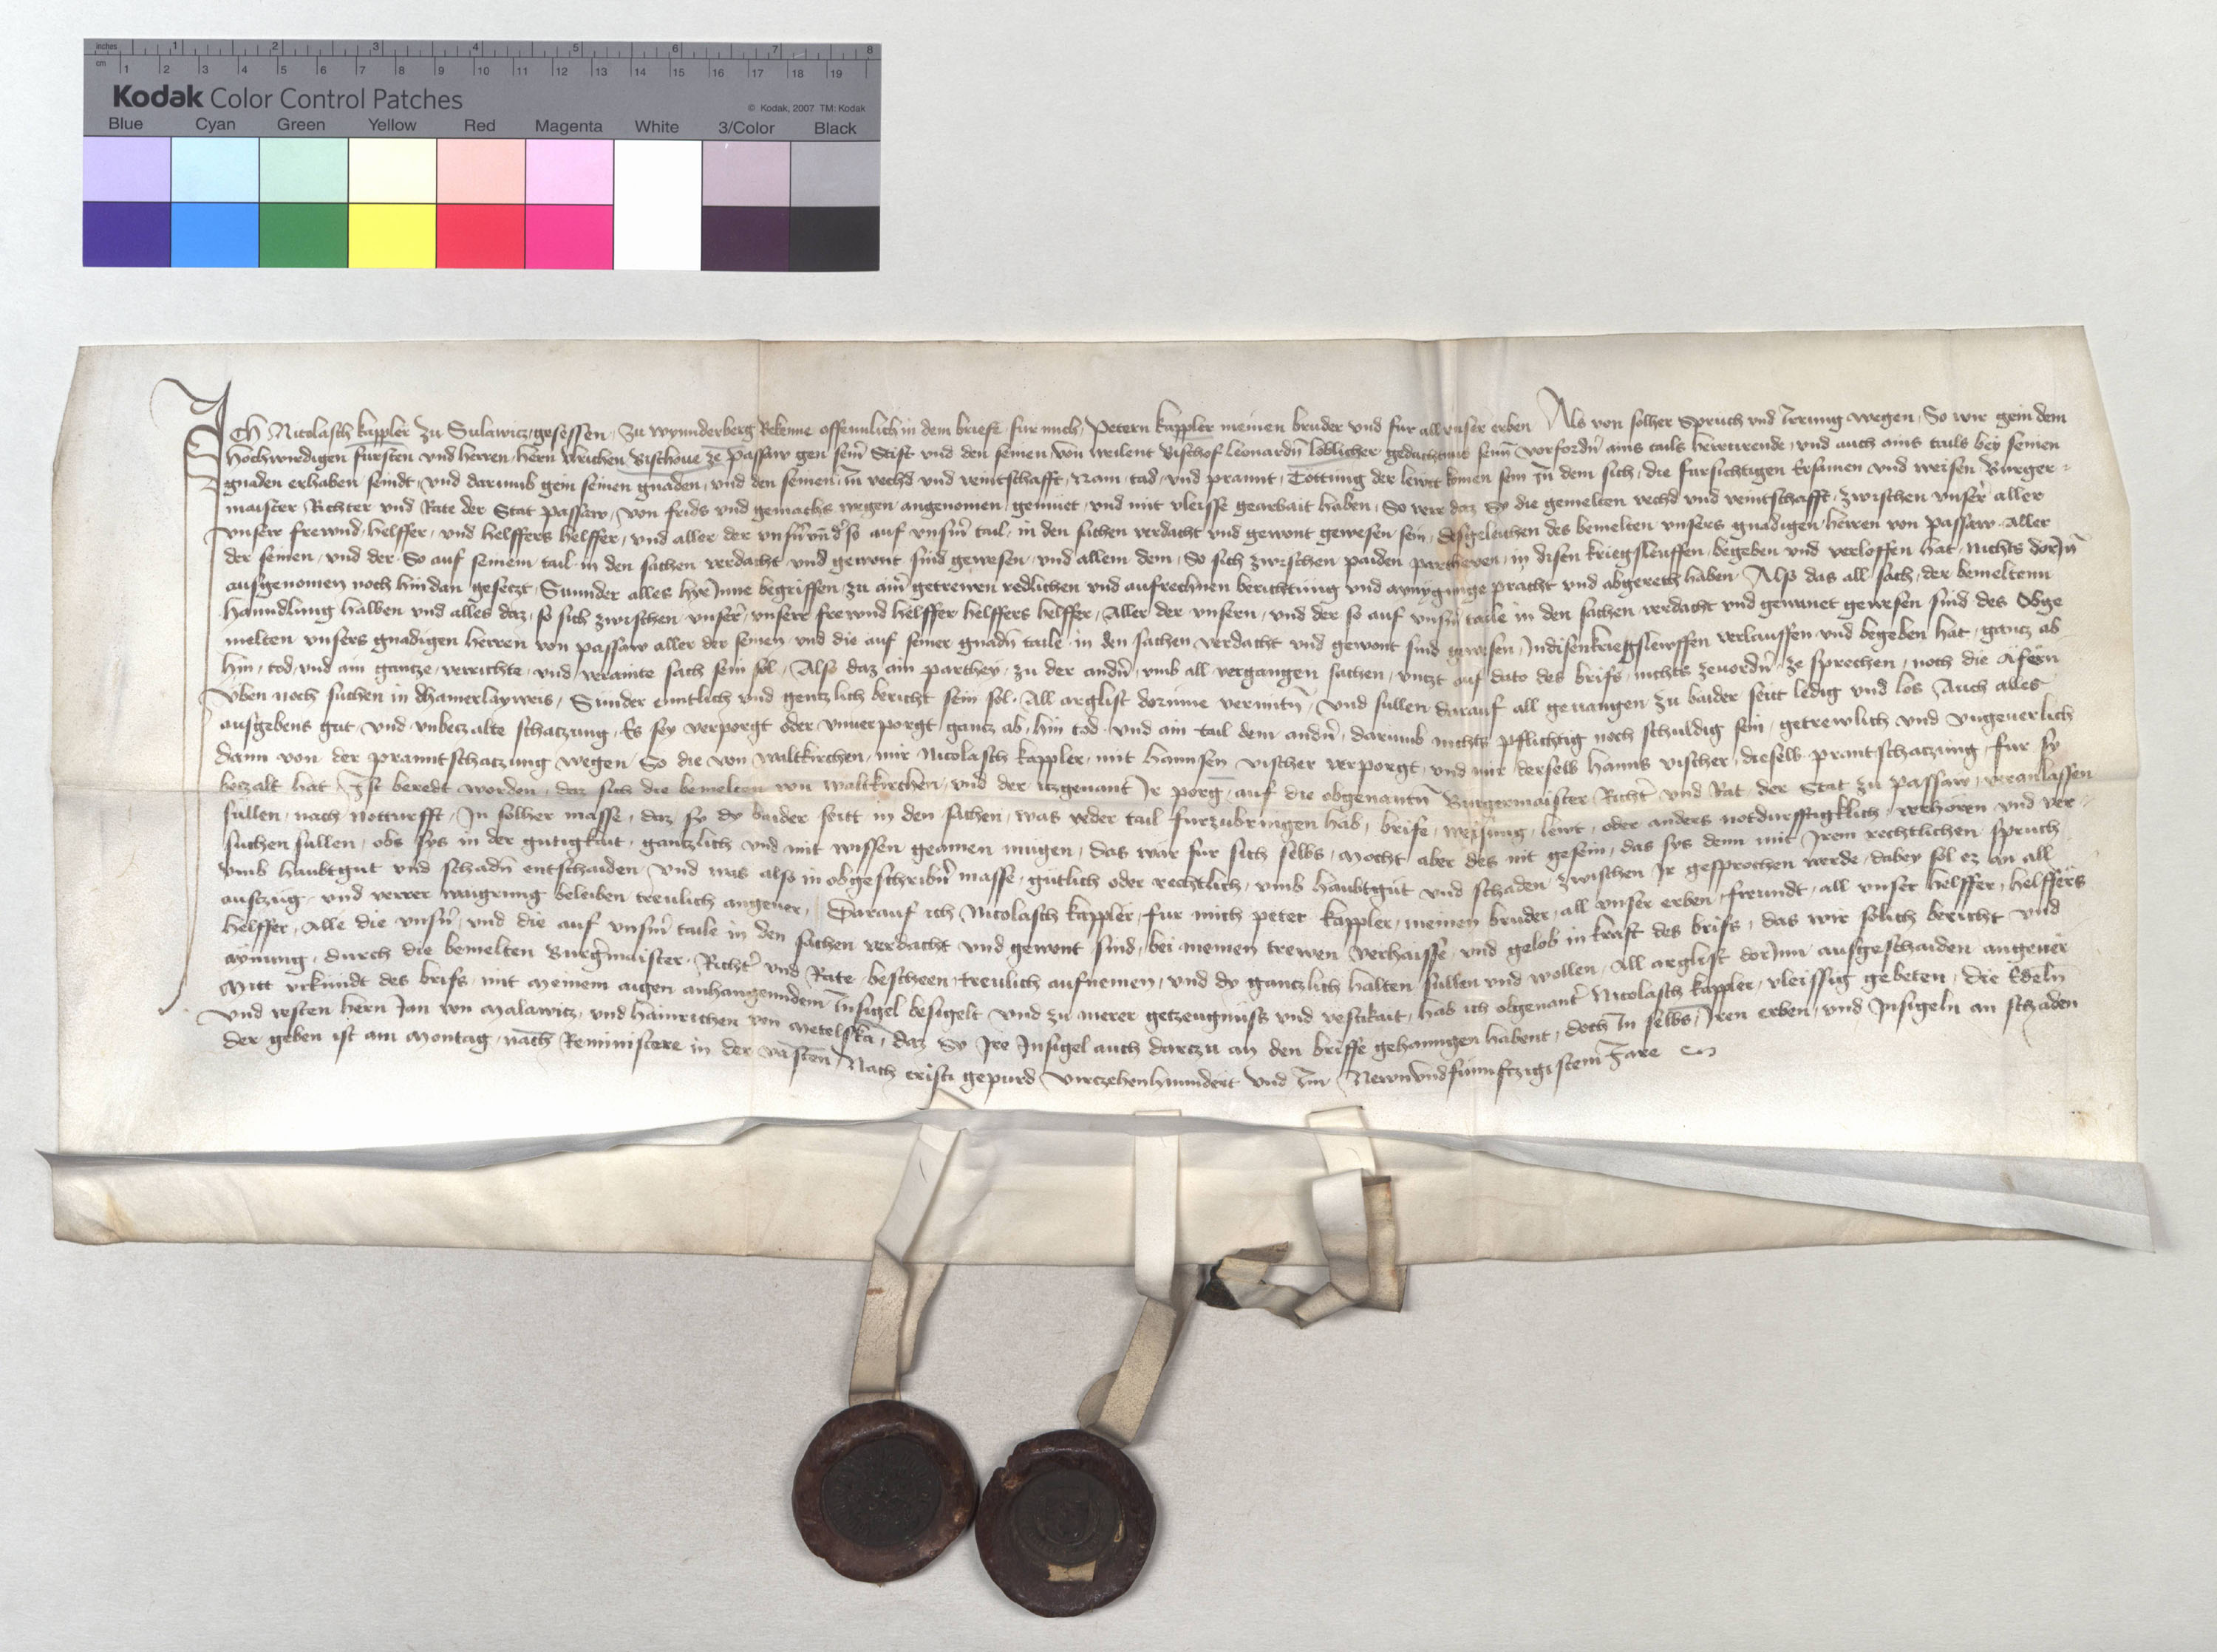 inches 1 2 3 4 5 6 7 8
cm 1 2 3 4 5 6 7 8 9 10 11 12 13 14 15 16 17 18 19
Kodak Color Control Patches
© Kodak, 2007 TM: Kodak
Blue Cyan Green Yellow Red Magenta White 3/Color Black
Ich Nicolasch kappler zu Sulawicz gesessen zu wynnderberg Bekenne offennlich in dem briefe fur mich, Petern kappler meinen bruder und fur all unser erben Als von solher Spruch vnd Irrung wegen So wir gein dem
hochwirdigen fursten und herren hern Ulrichen Bischoue ze passaw gen seim Stift und den seinen von weilent Bischof leonardn loblicher gedachtnus seinn vorfordn ains tails herrurende und auch ains tails bey seinen
gnaden erhaben seindt und darumb gein seinen gnaden und den seinen In vechd und veintschafft Nam tod und prannt Tottung der lewt komen sein In dem sich die fursichtigen Ersamen und weisen Burger
maister Richter und Rate der Stat passaw von frids und gemachs wegen angenomen gemuet und mit vleisse gearbait haben So verr daz Sy die gemelten vechd und veintschafft zwischen unser aller
unser frewnd helffer und helffers helffer und aller der unsern und der so auf unserm tail in den sachen verdacht und gewont gewesen sein desgeleichen des bemelten unsers gnadigen herren von passaw Aller
der seinen und der So auf seinem tail in den sachen verdacht und gewont sind gewesen und allem dem So sich zwischen paiden partheyen in disen kriegsleuffen begeben und verloffen hat Nichts dorInn
ausgenomen noch hindan gesetzt Sunder alles hyrInne begriffen zu aim getrewen redlichen und aufrechten berichtung und aynygunge pracht und abgerett haben Also das all sach der bemeltenn
hanndlung halben und alles daz so sich zwischen unser unsere frewnd helffer helffers helffer Aller der unsern und der so auf unserm taile in den sachen verdacht und gewonet gewesen sind des Obge
melten unsers gnadigen herren von passaw aller der seinen und die auf seiner gnadn taile in den sachen verdacht und gewont sind gewesen In disen kriegslewffen verlauffen und begeben hat gantz ab
hin tod und ain gantze verrichte und verainte sach sein sol Also daz ain parthey zu der andern umb all vergangen sachen untzt auf dato des brifs nichts zeuordern ze sprechen noch die Afern
üben noch suchen in dhainerlayweis Sunder enntlich und gentzlich bericht sein sol All arglist dorinne vermitn und sullen darauf all geuangen zu baider seitt ledig und los Auch alles
ausgebens gut und unbeczalte schatzung Es sey verporgt oder unuerporgt gantz ab hin tod und ain tail dem andern darumb nichts pflichtig noch schuldig sein getrewlich und Ungeuerlich
dann von der pranntschatzung wegen So die von waltkirchen mir Nicolasch kappler mit hannsen vischer verporgt und mir derselb hanns vischer dieselb prantschatzung fur sy
betzalt hat Ist beredt worden daz sich die bemelten von waltkirchen und der itzgenant Ir porg auf die obgenantn Burgermaister Richter und Rat der Stat zu passaw veranlassen
sullen nach notturfft In solher masse daz sy dy baider seitt in den sachen was yeder tail furzubringen hab brife weisung lewt oder anders notdurfftigklich verhoren und ver
suchen sullen obs sys in der gutigkait gantzlich und mit wissen geainen mugen das war fur sich selbs Mocht aber des nit gesein das sys denn mit Irem rechtlichen spruch
umb haubtgut und schadn entschaiden und was also in obgeschribner masse gutlich oder rechtlich umb haubtgut und schaden zwischen Ir gesprochen werde dabey sol ez an all
ausczug und verrer waigrung beleiben treulich angeuer Darauf ich Nicolasch kappler fur mich peter kappler meinen bruder all unser erben freundt all unser helffer helffers
helffer Alle die unsern und die auf unserm taile in den sachen verdacht und gewont sind bei meinen trewen verhaisse und gelob in krafft des brifs das wir solich bericht und
aynung durch die bemelten Burgermaister Richter und Rate bescheen treulich aufnemen und dy gantzlich halten sullen und wollen All arglist dorInn ausgeschaiden angeuer
Mitt urkundt des brifs mit meinem aigen anhangenndem Insigel besigelt und zu merer getzeugnuss und vestikait hab ich obgenanter Nicolasch kappler vleissig gebeten die Edeln
und vesten hern Jan von Malawitz und hainrichen von Metelska daz Sy Ire Insigel auch dartzu an den briffe gehanngen habent doch In selbs Iren erben und Insigeln an schaden
der geben ist am Montag nach Reminiscere in der vasten Nach cristi gepurd virczehenhundert und Im Newnundfunnftzigistem Jare